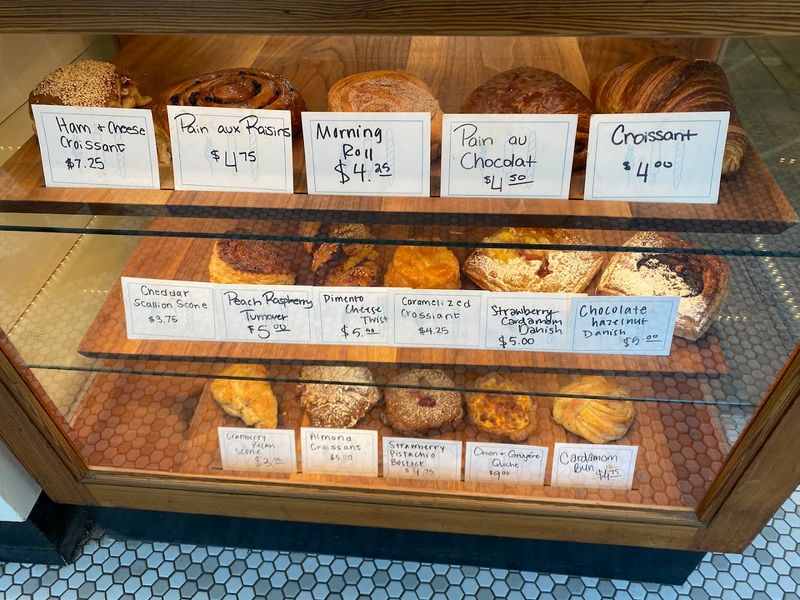 Ham + Cheese
Croissant
$7.25
Pain aux Raisins
$4.75
Morning
Roll
$4.25
Pain au
Chocolat
$4.50
Croissant
$4.00
Cheddar
Scallion Scone
$3.75
Peach Raspberry
Turnover
$5.00
Pimento
Cheese
Twist
$5.50
Caramelized
Crossiant
$4.25
Strawberry
Cardamom
Danish
$5.00
Chocolate
hazelnut
Danish
$5.00
Cranberry
Pecan
Scone
Almond
Croissant
$5.00
Strawberry
Pistachio
Bostock
$4.75
Onion + Gruyere
Quiche
$9.00
Cardamom
Bun $4.75